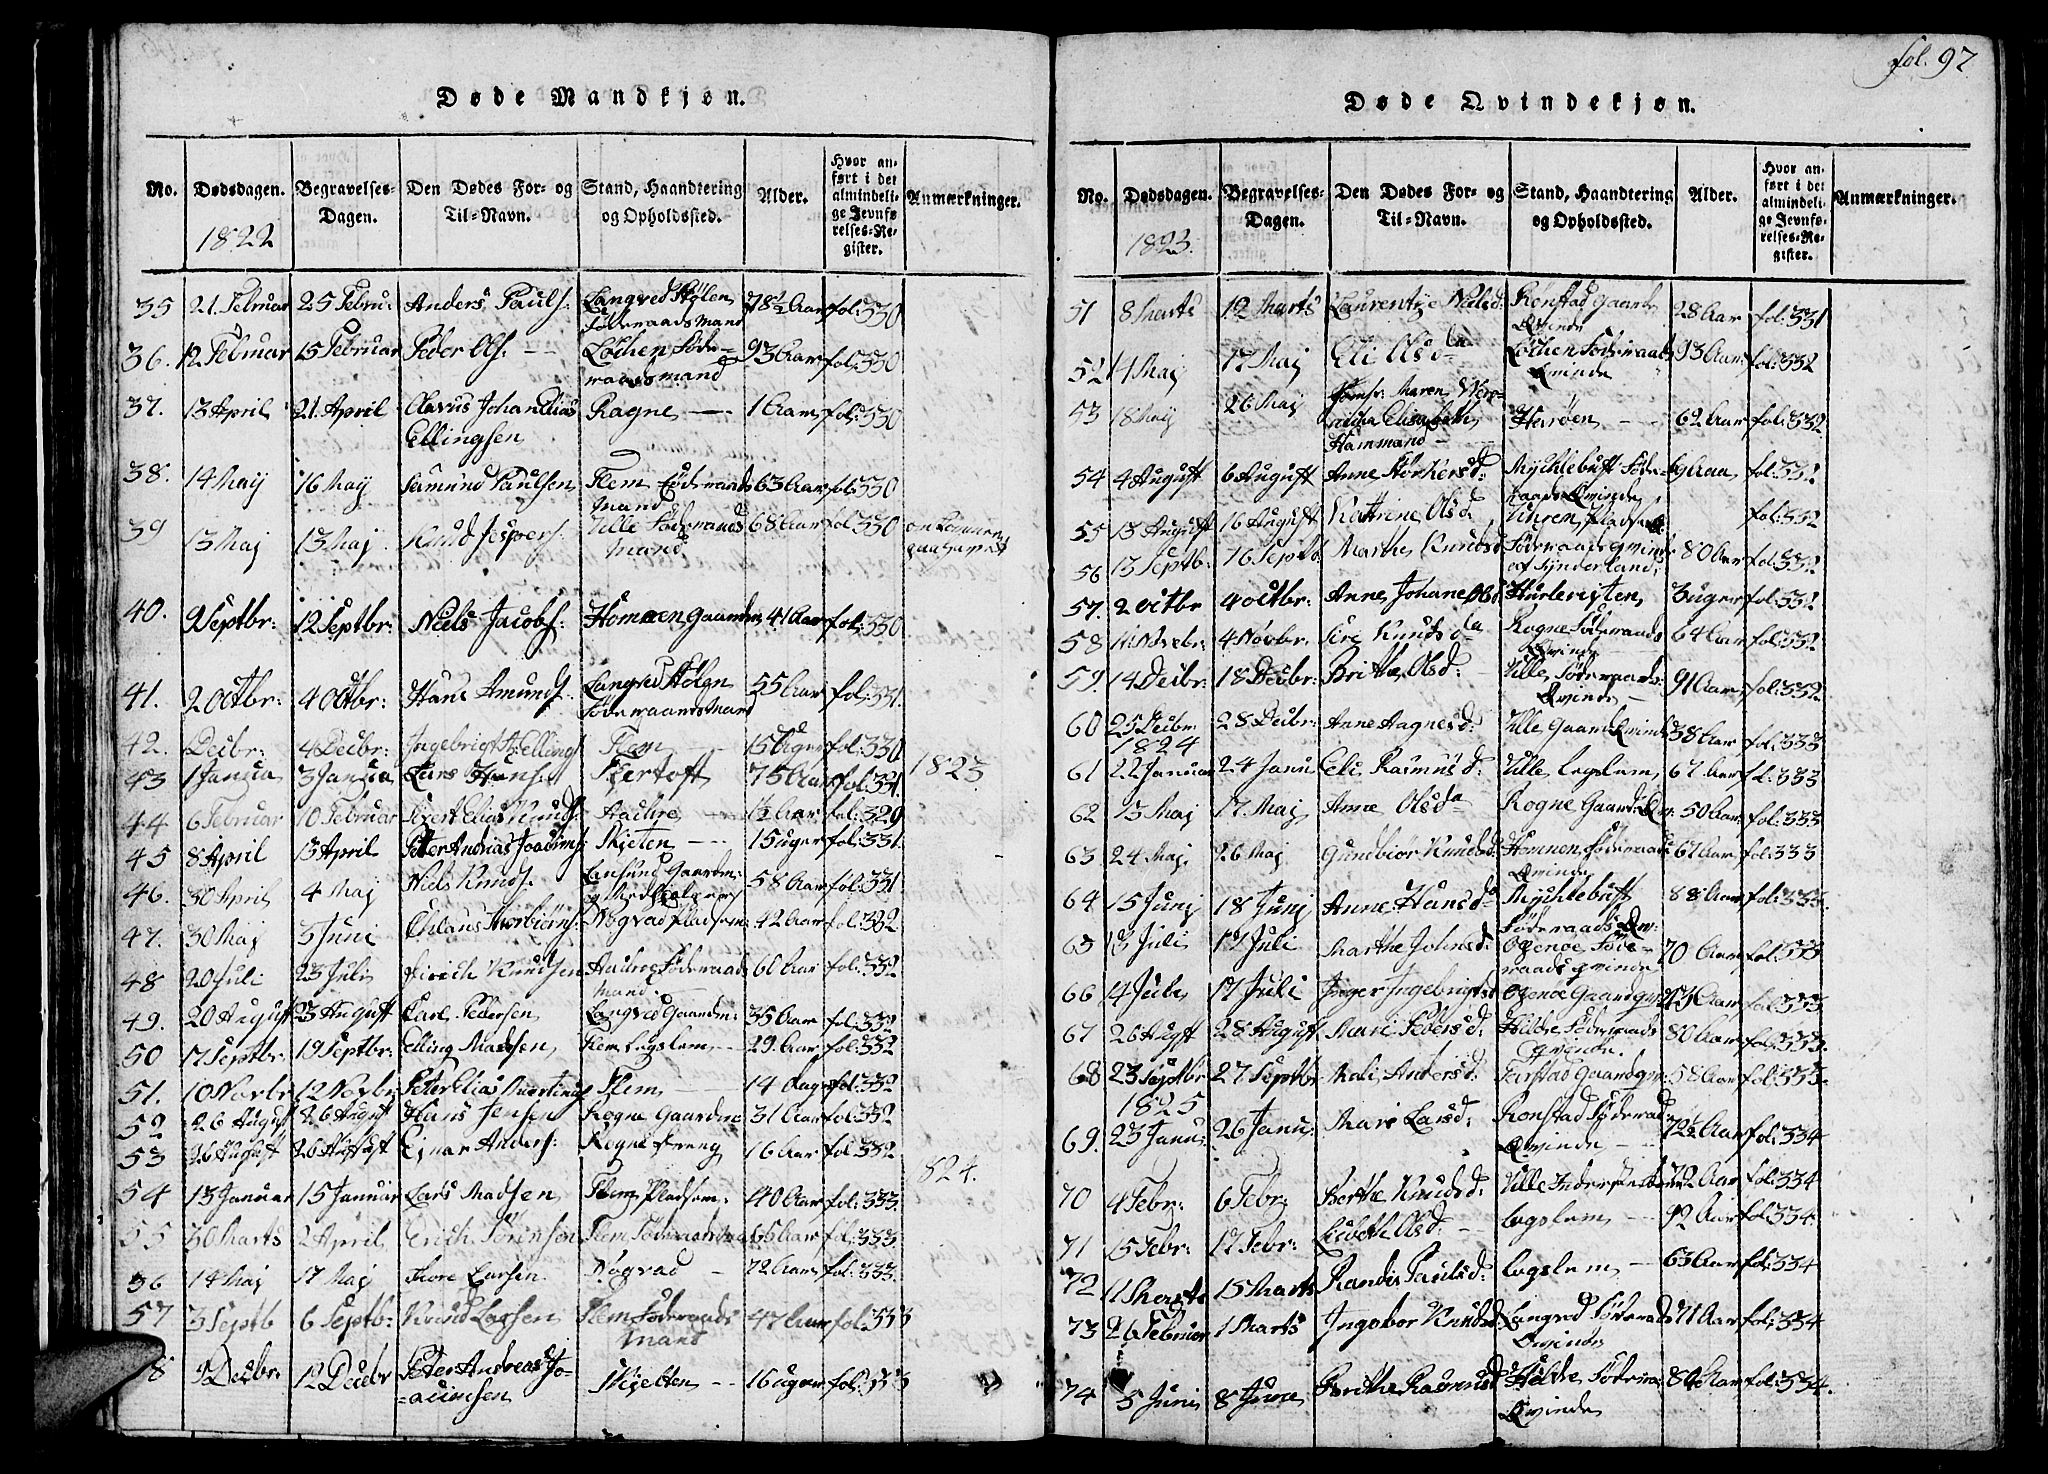 fol. 97
Døde Mandkjøn.
No. Dødsdagen. Begravelses-Dagen. Den Dødes For- og Til-Navn. Stand, Haandtering og Opholdssted. Alder. Hvor anført i det almindelige Jevnførelses-Register. Anmærkninger.
1822
35 21 Februar 25 Febru: Anders Pauls. Langved Stølen Föderaads Mand 78½ Aar fol: 330
36. 12 Februar 15 Februar Peder Ols. Löchen Föderaadsmand 93 Aar fol: 330
37. 13 April 21 April Olavus Johan Elias Ellingsen Rogne 1 Aar fol: 330
38. 14 Maij 16 Maij Samund Paulsen Flem Föderaads Mand 63 Aar fol: 330
39 13 Maj 13 Maj Knud Jespers. Ulle Föderaads Mand 68 Aar fol 330
40. 9 Septbr: 12 Septbr: Niels Jacobs: Homnen Gaardm 41 Aar fol: 330
41. 2 Octbr: 4 Octbr: Hans Amunds. Langved Stølen Föderaads Mand 55 Aar fol: 331.
42. Decbr: 4 Decbr: Ingebrigt Ellings. Flem 15 Uger fol: 330
43 1 Janua 3 Janua Lars Hans. Fiertoft 75 Aar fol: 331. 1823
44 6 Februar 10 Februar Sivert Elias Knuds. Aachre 1½ Aar fol: 329
45 8 April 13 April Peter Andrias Joacims. Skjeten 15 uger fol: 331.
46. 30 April 4 Maj Niels Knuds. Longund Gaardm: og Medhielper 58 Aar fol: 331
47. 30 Maj 3 Juni Thorbiørns. Rogvad Pladsem 42 Aar fol: 332
48 20 Juli 23 Juli Knudsen Aachre Föderaads Mand. 60 Aar fol: 332
49. 20 August 23 August Carl Pedersen Langved Gaardm: 35 Aar fol: 332
50 17 Septbr: 19 Septbr: Elling Madsen Flem Logslem 29 Aar fol: 332
51. 10 Novbr 12 Novbr Peter Elias Martinus Flem 14 Dage fol: 332
52 26 August 26 August Hans Jensen Rogne Gaardm 31 Aar fol: 332
53 26 August 26 August Ejnar Anders: Rogne Dreng 16 Aar fol: 332
1824.
54 13 Januar 15 Januar Lars Madsen Flem Pladsem: 40 Aar fol: 333.
55 30 Marts 2 April Erich Sörensen Flem Föderaadsm 65 Aar fol: 333.
56 14 Maj 17 Maj Thore Larsen Rogvad 72 Aar fol: 333.
57 3 Septb 6 Septb: Knud Larsen Flem Föderaads Mand 47 Aar fol: 333
8 9 Decbr: 12 Decbr Peter Andreas Joacimsen Skjetten 16 uger fol: 333
Døde Qvindekjøn.
No. Dødsdagen. Begravelses-Dagen. Den Dødes For- og Til-Navn. Stand, Haandtering og Opholdssted. Alder. Hvor anført i det almindelige Jevnførelses-Register. Anmærkninger.
1823.
51 8 Marts 12 Marts Laurentze Nielsd: Rønstad Gaards Qvinde 28 Aar fol: 331
52 14 Maj 17 Maj Eli Olsda Löchen Föderaads Qvinde 93 Aar fol: 332
53 18 Maij 26 Maij Jomfr: Maren Veronicha Elisabeth Hammand Harøen 62 Aar fol: 332
54 4 August 6 August Anne Størkersd: Mychlebust Föderaads Qvinde 69 Aar fol: 332
55 13 August 16 August Kathrine Olsd Uhren Pladsen fol: 332
56 13 Septb: 16 Septb: Marthe Knudsd Föderaads qvinde af Synderland 80 Aar fol: 332
57. 2 Octbr 4 Octbr: Anne Johane Olsd 3 uger fol: 332
58 1 Novebr: 4 Novbr: Siri Knudsda Rogne Föderaads Qvinde 64 Aar fol: 332
59. 14 Decbr: 18 Decbr: Brithe Olsd: Ulle Föderaads Qvinde 91 Aar fol: 332
60 25 Decbr 28 Decbr: Anne Aagnesd: Ulle Gaard Qvinde 38 Aar fol: 333
1824
61 22 Januar 24 Janu Eli Rasmusd: Ulle Logslem 67 Aar fol: 333
62 13 Maj 17. Maj Anne Olsda Rogne Gaards Qv: 50 Aar fol: 333
63 24 Maj 26 Maj Gundbior Knudsd: Homnen Föderaads Qvinde 67 Aar fol: 333
64 15 Junj 18 Junj Anne Hansda Mychlebust Föderaads Qv: 88 Aar fol: 333.
65 13 Juli 17 Juli Marthe Johnsd: Ogenøe Föderaads qvinde 70 Aar fol: 333
66 14 Juli 17 Juli Inger Ingebrigtsd Ogenøe Gaardqv: Aar fol: 333
67 26 Augst 28 August Mari Pedersd: Hildre Föderaads Qvinde. 80 Aar fol: 333.
68 23 Septbr 27 Septbr Mali Andersd: Farstad Gaardqv: 58 Aar fol: 333.
1825
69. 23 Janu: 26 Janu: Mari Larsd: Ronstad Föderaads Qvinde 72½ Aar fol: 334
70 4 Febr: 6 Febr: Berthe Knudsd: Ulle 72 Aar fol: 334
71 15 Febr: 17 Febr: Lisbeth Olsd: Logslem 92 Aar fol: 334.
72 11 Marts 15 Marts Randi Paulsd: Logslem 63 Aar fol: 334
73 26 Februar 1 Marts Ingebor Knudsd: Langved Föderaads Qvinde 71 Aar fol: 334
74 5 Juni 8 June Brithe Rasmusd Hildre Föderaa: Qvinde 84 Aar fol: 334.